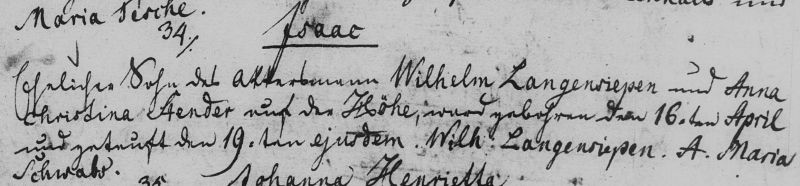 Maria Tesche.
und
34./
Isaac
Ehelicher Sohn des Akkersmann Wilhelm Langensiepen und Anna
Christina Aender auf der Höhe, ward gebohren den 16.ten April
und getauft den 19.ten ejusdem. Wilh. Langensiepen. A. Maria
Schwabs.
35
Johanna Henrietta